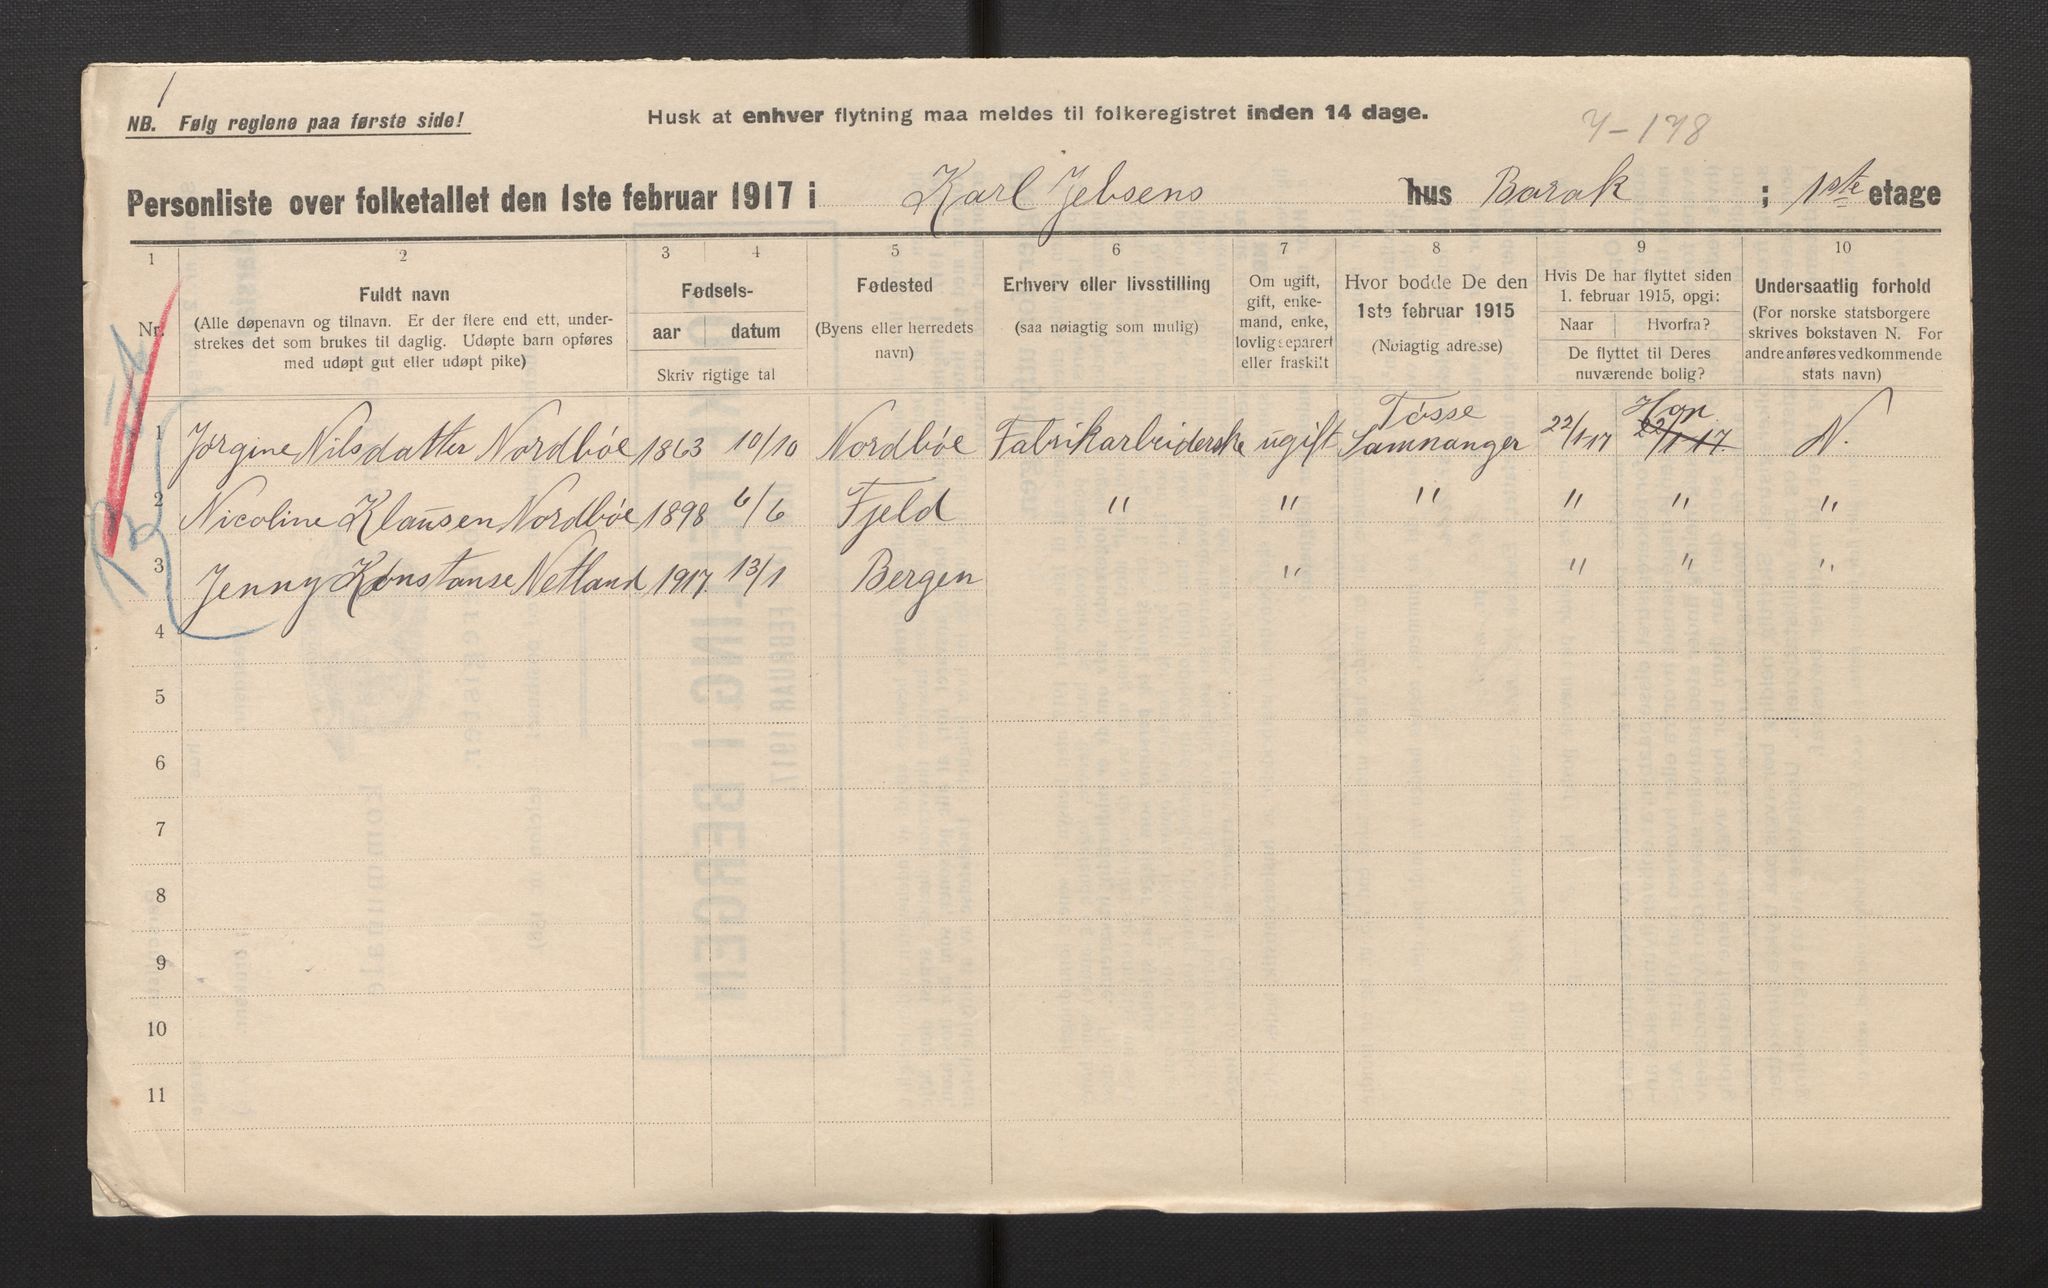 1
NB. Følg reglene paa første side!
Husk at enhver flytning maa meldes til folkeregistret inden 14 dage.
Personliste over folketallet den 1ste februar 1917 i Karl Jebsens hus Barak ; 1ste etage
1 2 3 4 5 6 7 8 9 10
Nr.
Fuldt navn
(Alle døpenavn og tilnavn. Er der flere end ett, under-
strekes det som brukes til daglig. Udøpte barn opføres
med udøpt gut eller udøpt pike)
Fødsels-
aar datum
Skriv rigtige tal
Fødested
(Byens eller herredets
navn)
Erhverv eller livsstilling
(saa nøiagtig som mulig)
Om ugift,
gift, enke-
mand, enke,
lovlig separert
eller fraskilt
Hvor bodde De den
1ste februar 1915
(Nøiagtig adresse)
Hvis De har flyttet siden
1. februar 1915, opgi:
Naar Hvorfra?
De flyttet til Deres
nuværende bolig?
Undersaatlig forhold
(For norske statsborgere
skrives bokstaven N. For
andre anføres vedkommende
stats navn)
1 Jørgine Nilsdatter Nordbøe 1863 10/10 Nordbøe Fabrikarbeiderske ugift Tøsse Samnanger 22/1 17 Hop 22/1 17. N.
2 Nicoline Klausen Nordbøe 1898 6/6 Fjeld " " " " " "
3 Jenny Konstanse Netland 1917. 13/1 Bergen " " " "
4
5
6
7
8
9
10
11